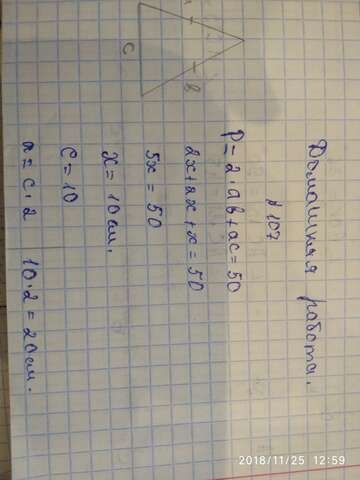 Домашняя работа.
№107
a
c
b
P=2·ab+ac=50
2x+2x+x=50
5x=50
x=10см.
c=10
a=c·2 10·2=20см.
2018/11/25 12:59